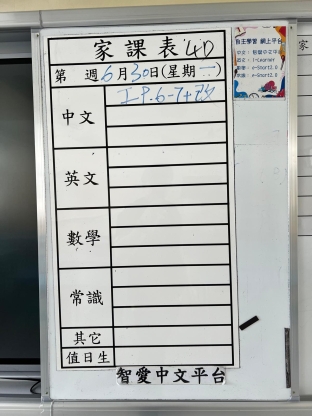 家課表4D
第 週6月30日(星期一)
中文
工P.6-7+改
英文
數學
常識
其它
值日生
智愛中文平台
自主學習 網上平台
中文：智愛中文平台
英文：i-Learner
數學：e-Smart2.0
常識：e-Smart2.0
家